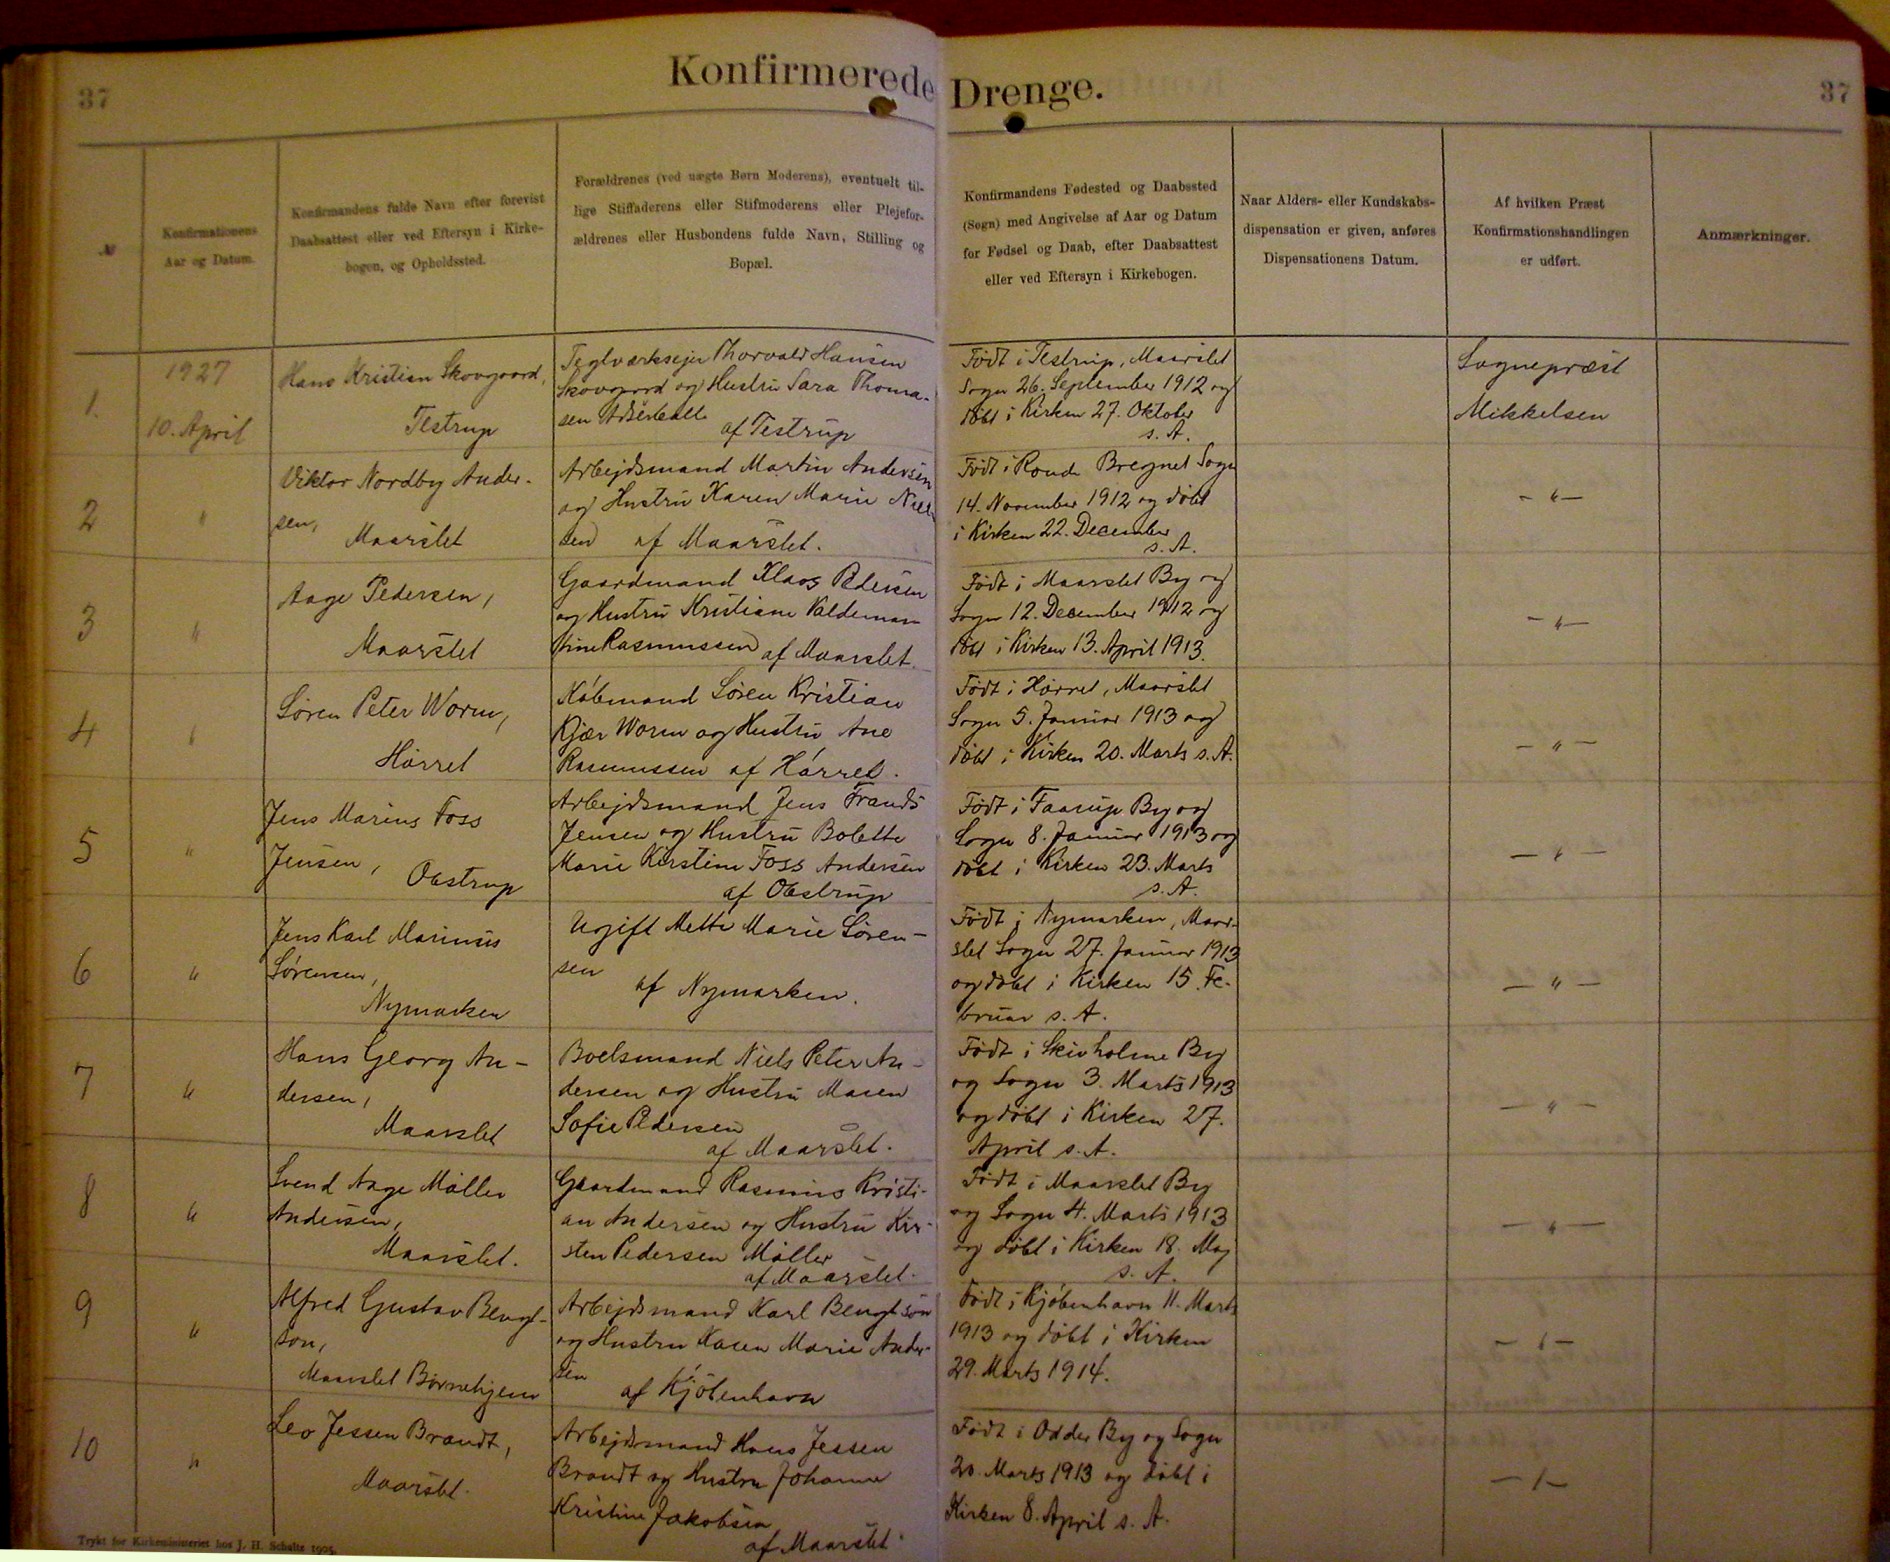 37
Konfirmerede Drenge.
37
№
Konfirmationens
Aar og Datum.
Konfirmandens fulde Navn efter forevist
Daabsattest eller ved Eftersyn i Kirke-
bogen, og Opholdssted.
Forældrenes (ved uægte Børn Moderens), eventuelt til-
lige Stiffaderens eller Stifmoderens eller Plejefor-
ældrenes eller Husbondens fulde Navn, Stilling og
Bopæl.
Konfirmandens Fødested og Daabssted
(Sogn) med Angivelse af Aar og Datum
for Fødsel og Daab, efter Daabsattest
eller ved Eftersyn i Kirkebogen.
Naar Alders- eller Kundskabs-
dispensation er given, anføres
Dispensationens Datum.
Af hvilken Præst
Konfirmationshandlingen
er udført.
Anmærkninger.
1.
1927
10. April
Hans Kristian Skovgaard,
Testrup
Teglværksejer Thorvald Hansen
Skovgaard og Hustru Sara Thoma-
sen
af Testrup
Født i Testrup, Maarslet
Sogn 26. September 1912 og
døbt i Kirken 27. Oktober
s. A.
Sognepræst
Mikkelsen
2
"
Viktor Nordby Ander-
sen,
Maarslet
Arbejdsmand Martin Andersen
og Hustru Karen Marie Niel-
sen af Maarslet.
Født i Ronde Bregnet Sogn
14. November 1912 og døbt
i Kirken 22. December
s. A.
- " -
3
"
Aage Pedersen,
Maarslet
Gaardmand Klaos Pedersen
og Hustru Kristiane Valdemar-
sine Rasmussen af Maarslet.
Født i Maarslet By og
Sogn 12. December 1912 og
døbt i Kirken 13. April 1913.
- " -
4
"
Søren Peter Worm,
Hørret
Købmand Søren Kristian
Kjær Worm og Hustru Ane
Rasmussen af Hørret.
Født i Hørret, Maarslet
Sogn 5. Januar 1913 og
døbt i Kirken 20. Marts s. A.
- " -
5
"
Jens Marius Foss
Jensen,
Obstrup
Arbejdsmand Jens Frands
Jensen og Hustru Bolette
Marie Kirstine Foss Andersen
af Obstrup
Født i Faarup By og
Sogn 8. Januar 1913 og
døbt i Kirken 23. Marts
s. A.
- " -
6
"
Jens Karl Marinus
Sørensen,
Nymarken
Ugift Mette Marie Søren-
sen
af Nymarken.
Født i Nymarken, Maar-
slet Sogn 27. Januar 1913
og døbt i Kirken 15. Fe-
bruar s. A.
- " -
7
"
Hans Georg An-
dersen,
Maarslet
Boelsmand Niels Peter An-
dersen og Hustru Maren
Sofie Pedersen
af Maarslet.
Født i Skivholme By
og Sogn 3. Marts 1913
og døbt i Kirken 27.
April s. A.
- " -
8
"
Svend Aage Møller
Andersen,
Maarslet.
Gaardmand Rasmus Kristi-
an Andersen og Hustru Kir-
sten Pedersen Møller
af Maarslet.
Født i Maarslet By
og Sogn 4. Marts 1913
og døbt i Kirken 18. Maj
s. A.
- " -
9
"
Alfred Gustav Bengt-
son,
Maarslet Børnehjem
Arbejdsmand Karl Bengtson
og Hustru Karen Marie Ander-
sen
af Kjøbenhavn
Født i Kjøbenhavn 11. Marts
1913 og døbt i Kirken
29. Marts 1914.
- " -
10
"
Leo Jessen Brandt,
Maarslet.
Arbejdsmand Hans Jessen
Brandt og Hustru Johanne
Kristine Jakobsen
af Maarslet
Født i Odder By og Sogn
20. Marts 1913 og døbt i
Kirken 8. April s. A.
- " -
Trykt for Kirkeministeriet hos J. H. Schultz 1905.